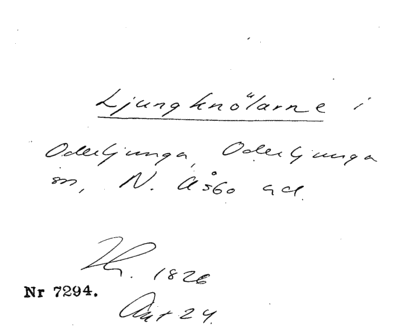 Ljungknölarne i
Oderljunga, Oderljunga
sn, N. Åsbo hd.
1826
Nr 7294.
24.